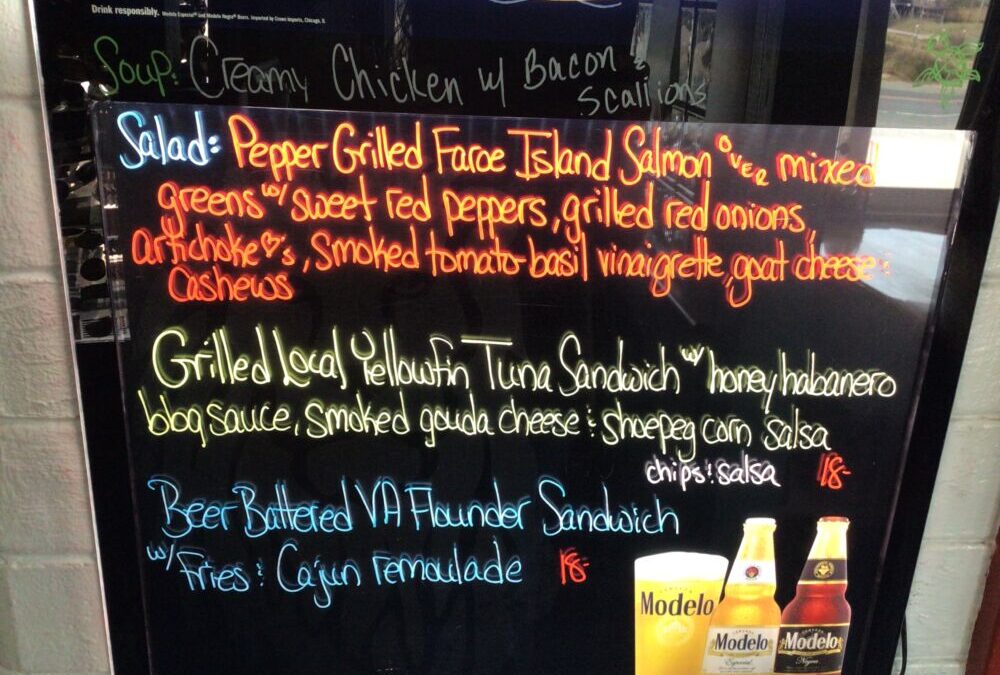 Drink responsibly. Modelo Especial® and Modelo Negra® Beers. Imported by Crown Imports, Chicago, IL
Soup: Creamy Chicken w/ Bacon &
Scallions
Salad: Pepper Grilled Faroe Island Salmon OVER mixed
greens w/ sweet red peppers, grilled red onions,
artichoke ♡'s, smoked tomato-basil vinaigrette, goat cheese &
Cashews
Grilled Local Yellowfin Tuna Sandwich w/ honey habanero
bbq sauce, smoked gouda cheese & shoepeg corn salsa
chips & salsa 18-
Beer Battered VA Flounder Sandwich
w/ Fries & Cajun remoulade 18-
Modelo
Modelo
Especial
Modelo
Negra